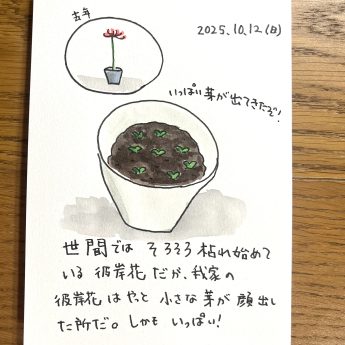 去年
2025.10.12(日)
いっぱい芽が出てきたぞ!
世間では そろそろ枯れ始めて
いる 彼岸花 だが、我家の
彼岸花 は やっと 小さな芽が 顔出し
た所だ。しかも いっぱい!